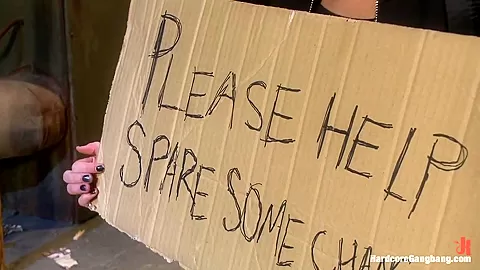 PLEASE HELP
SPARE SOME CHAN
HardcoreGangbang.com